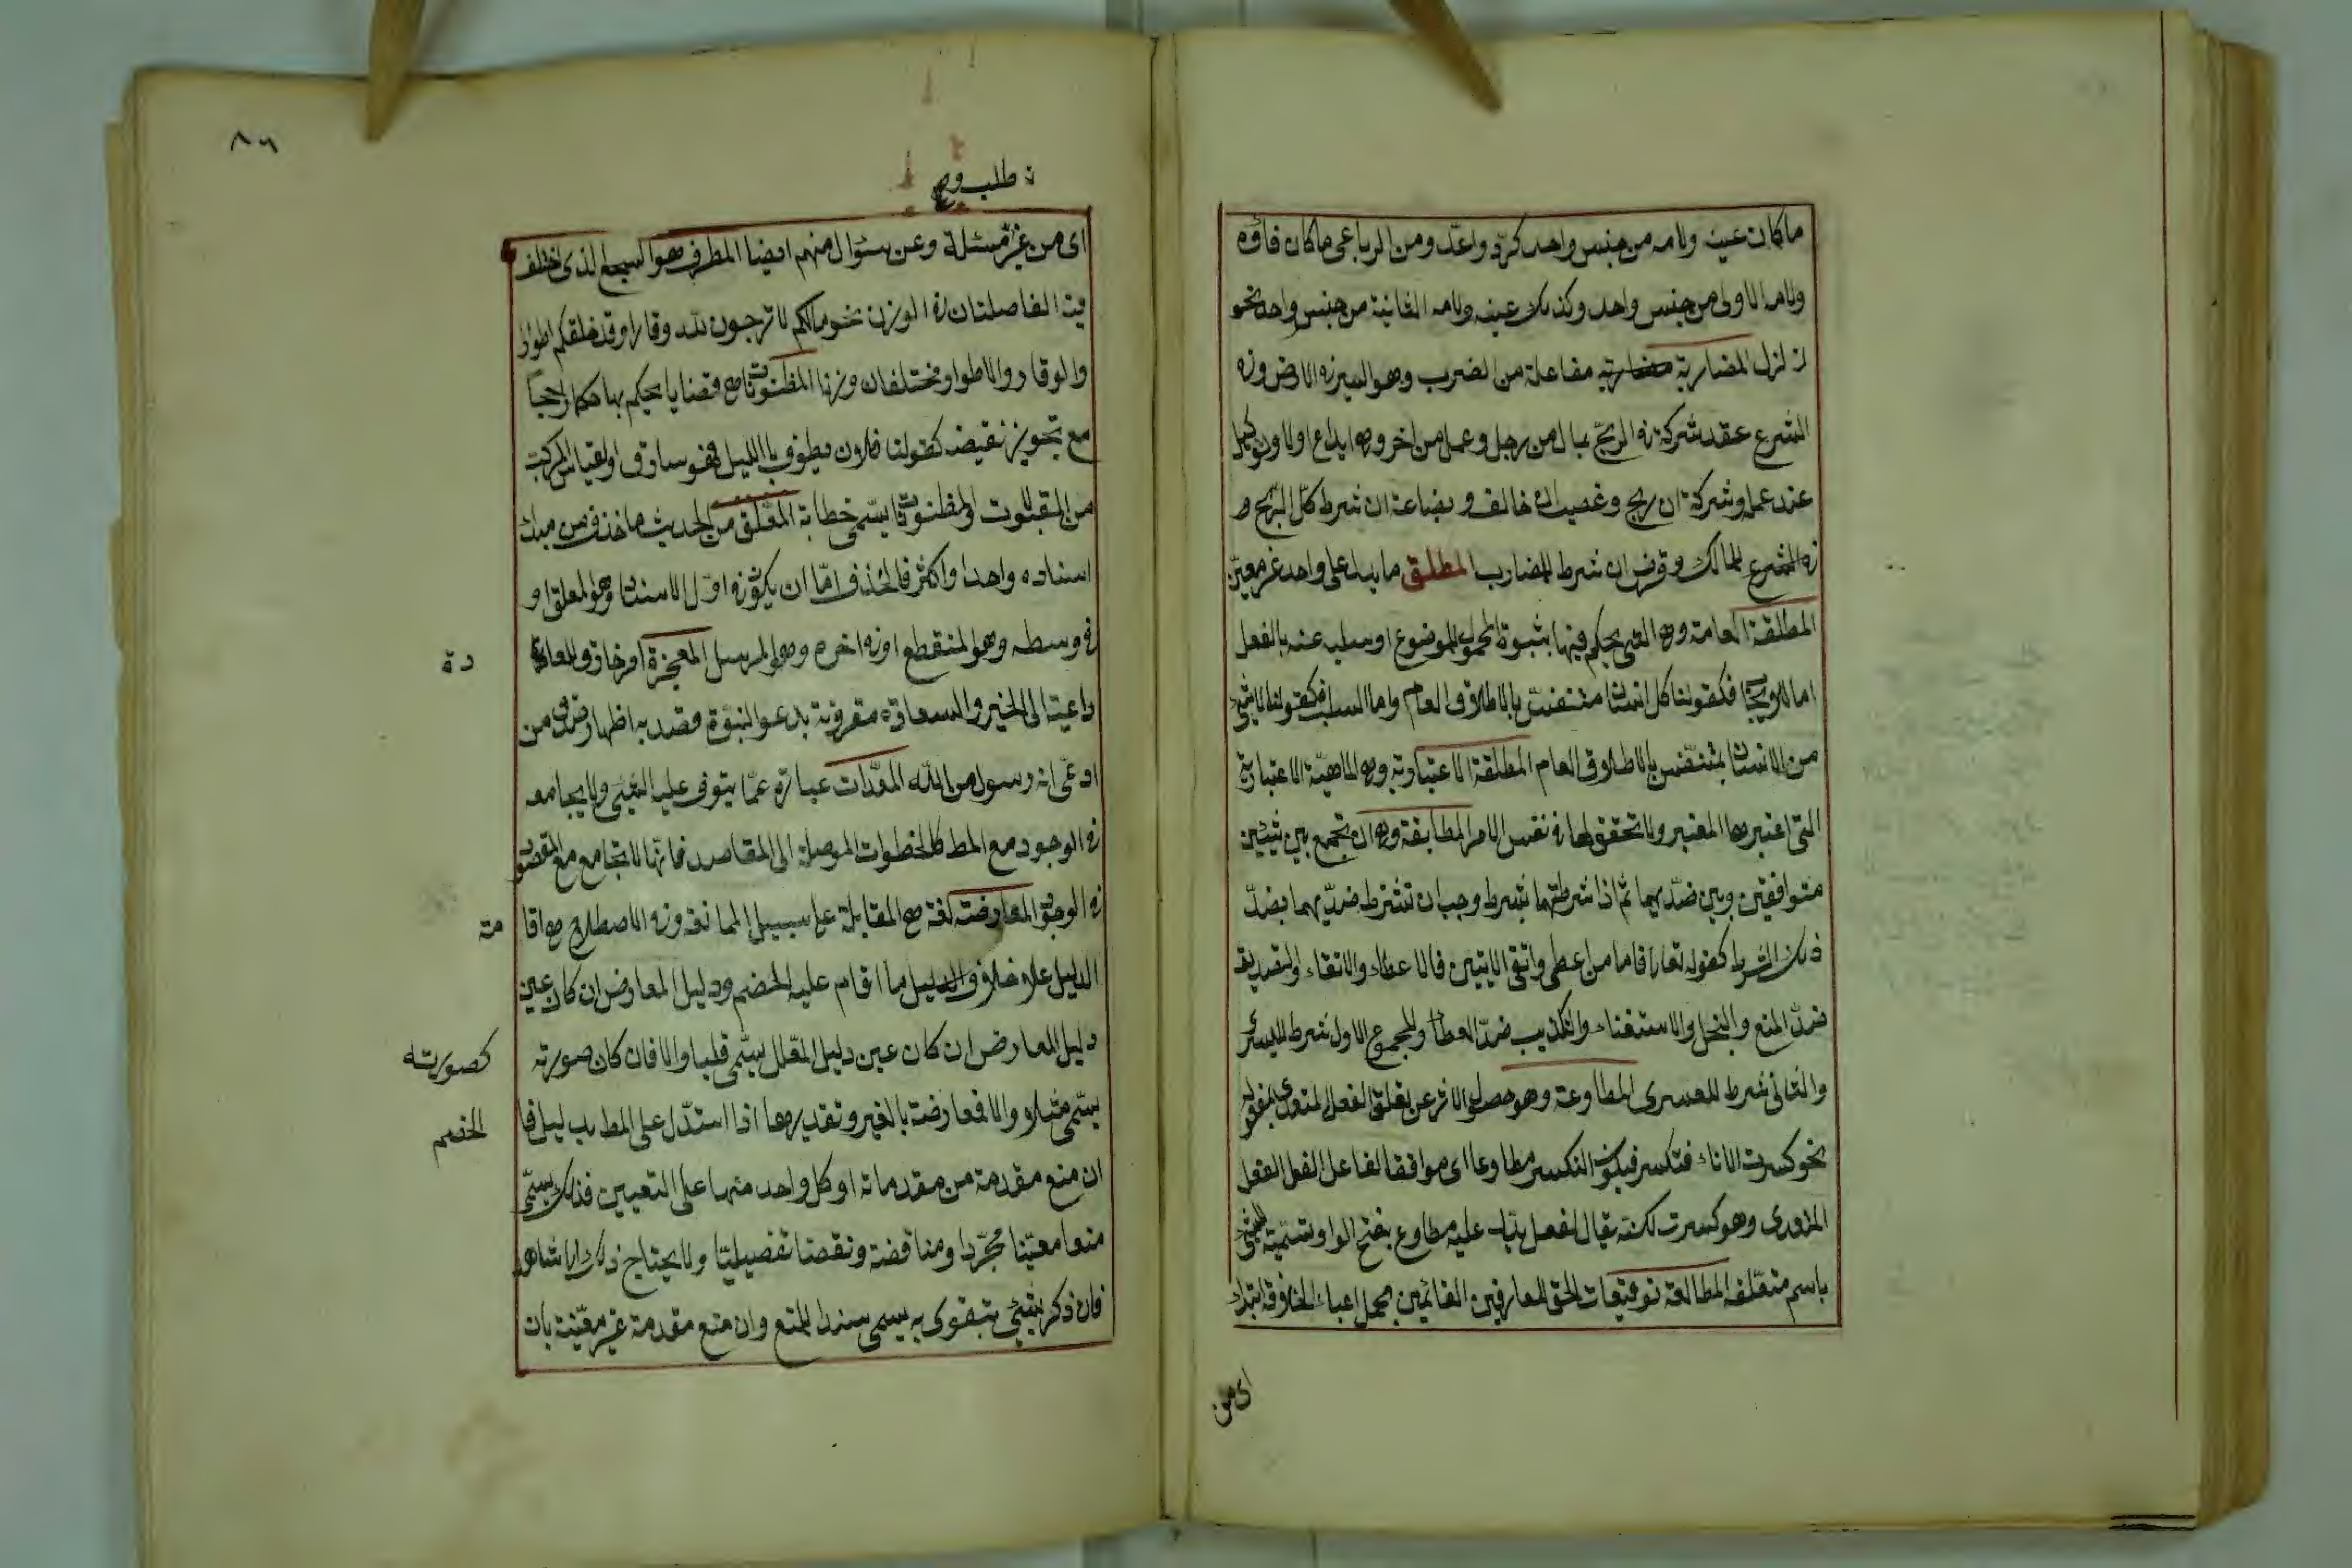 ما كان عينه ولامه من جنس واحد كرد واعد ومن الرباعى ما كان فاؤه
ولامه الاولى من جنس واحد وكذلك عينه ولامه الثانية من جنس واحد نحو
زلزل المضاربة مفاعلة من الضرب وهو السير فى الارض وفى
الشرع عقد شركة فى الربح بمال من رجل وعمل من اخر وهى ايداع اولا وتوكيل
عند عمله وشركة ان ربح وغصب ان خالف وبضاعة ان شرط كل الربح
للمالك وقرض ان شرط للمضارب المطلق ما يدل على واحد غير معين
المطلقة العامة وهى التى يحكم فيها بثبوت المحمول للموضوع او سلبه عنه بالفعل
اما الايجاب فكقولنا كل انسان متنفس بالاطلاق العام واما السلب فكقولنا لا شئ
من الانسان بمتنفس بالاطلاق العام المطلقة الاعتبارية وهى الماهية الاعتبارية
التى اعتبرها المعتبر ولا تحقق لها فى نفس الامر المطابقة وهى ان تجمع بين شيئين
متوافقين وبين ضديهما ثم اذا شرطتهما بشرط وجب ان تشترط ضديهما بضد
ذلك الشرط كقوله تعالى فاما من اعطى واتقى الايتين فالاعطاء والاتقاء والتصديق
ضد المنع والبخل والاستغناء والتكذيب ضد العطاء والمجموع الاول شرط لليسرى
والثانى شرط للعسرى المطاوعة وهو حصول الاثر عن تعلق الفعل المتعدى بمفعوله
نحو كسرت الاناء فتكسر فيكون التكسر مطاوعا اى موافقا لفاعل الفعل
وهو كسرت لكنه يقال لفعل يدل عليه مطاوع بفتح الواو تسمية للشئ
باسم متعلقه المطالعة توفيقات الحق للعارفين القائمين بحمل اعباء الخلافة ابتداء
اى من
٨٦
طلب
اى من غير مسئلة وعن سؤال منهم ايضا المطرف هو السجع الذى اختلف
فيه الفاصلتان فى الوزن نحو مالكم لا ترجون لله وقارا وقد خلقكم اطوارا
والوقار والاطوار مختلفان وزنا المظنونات هى قضايا يحكم بها حكما راجحا
مع تجويز نقيضه كقولنا فلان يطوف بالليل فهو سارق والقياس المركب
من المقبولات والمظنونات يسمى خطابة المعلق من الحديث ما حذف من مبدأ
اسناده واحدا واكثر فالحذف اما ان يكون فى اول الاسناد وهو المعلق او
فى وسطه وهو المنقطع او فى اخره وهو المرسل المعجزة امر خارق للعادة
داعية الى الخير والسعادة مقرونة بدعوى النبوة قصد به اظهار صدق من
ادعى انه رسول من الله المعدات عبارة عما يتوقف عليه الشئ ولا يجامعه
فى الوجود مع المط كالخطوات الموصلة الى المقاصد فانها لا تجامع مع المقصود
فى الوجود المعارضة لغة هى المقابلة على سبيل الممانعة وفى الاصطلاح هى اقا
مة
الدليل على خلاف الدليل ما اقام عليه الخصم ودليل المعارض ان كان عين
دليل المعارض ان كان عين دليل المعلل يسمى قلبا والا فان كان صورته
كصورته
يسمى مثلا والا فمعارضة بالغير وتقديرها اذا استدل على المط بدليل فا
الخصم
ان منع مقدمة من مقدماته او كل واحد منها على التعيين فذلك يسمى
منعا معينا مجردا ومناقضة ونقضا تفصيليا ولا يحتاج فى ذلك الى شاهد
فان ذكر بشئ يتقوى به يسمى سندا للمنع وان منع مقدمة غير معينة بان